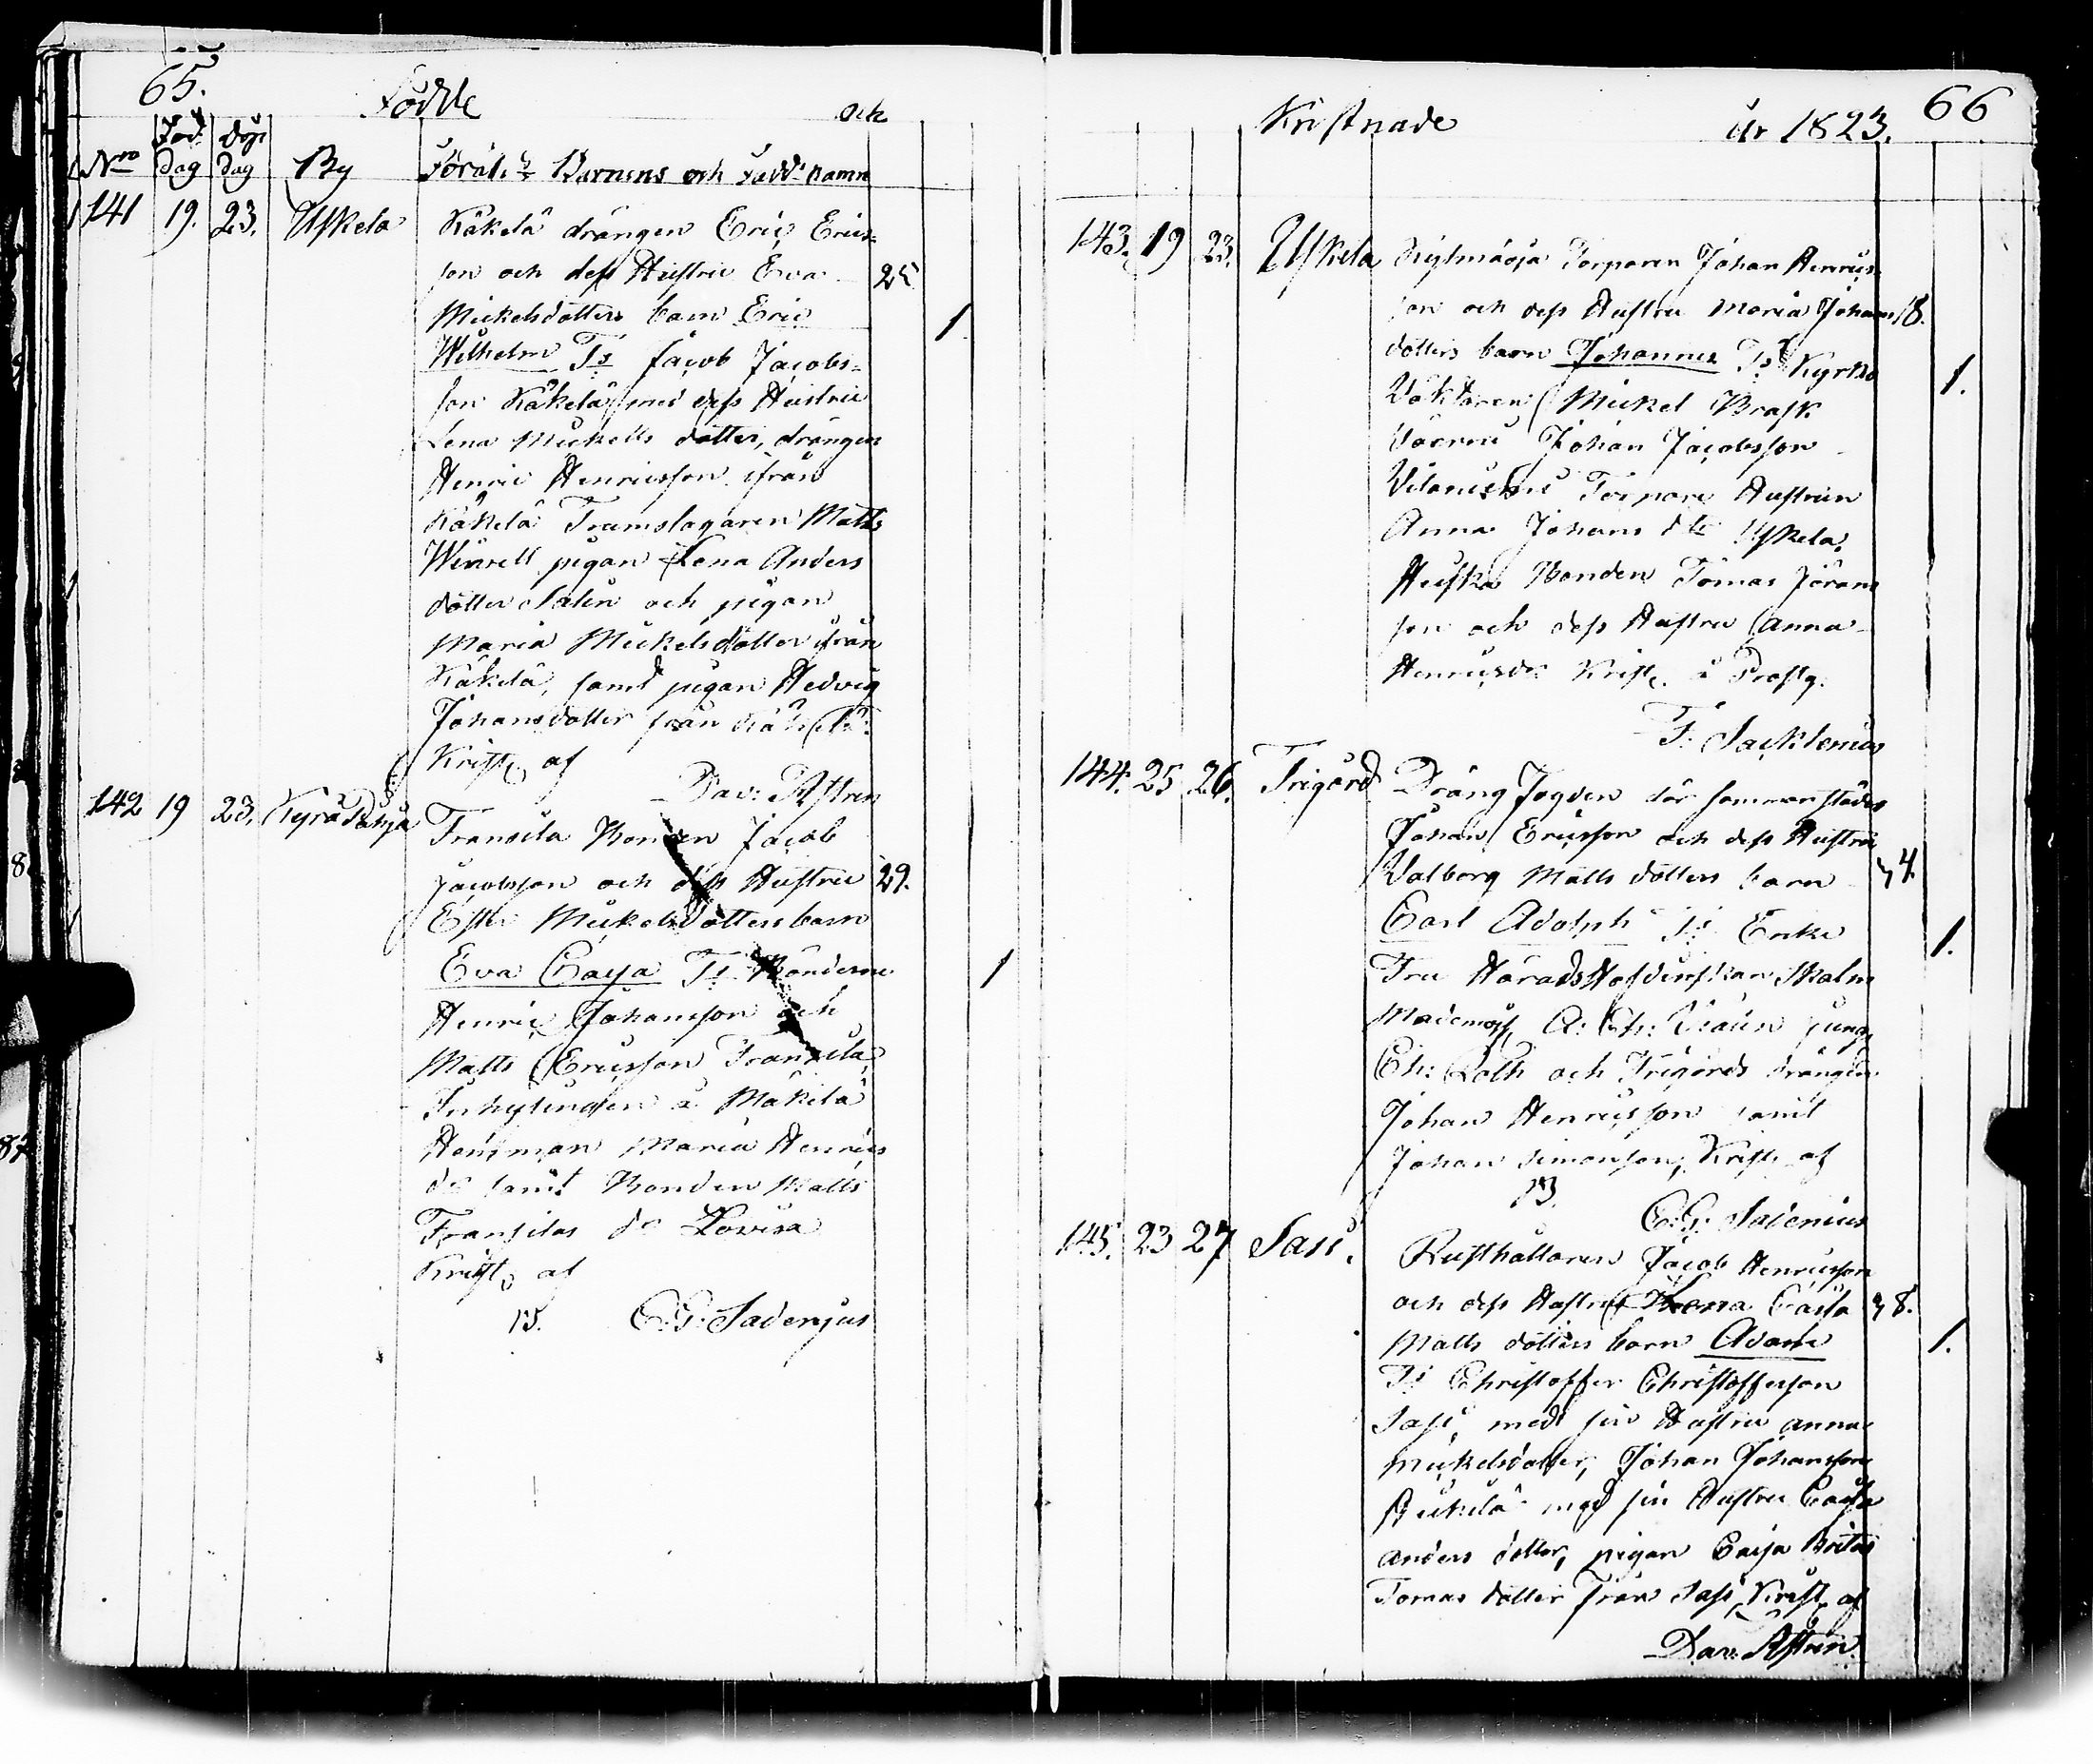 65.
Födde och
Nro Föd. dag Döpt dag By Föräls Barnens och Fadd. namn
141 19. 23. Uskela Käkelä drängen Eric Erics=
son och dess Hustru Eva 25
Mickelsdotters barn Eric 1
Wilhelm Ts Jacob Jacobs=
son Käkelä med dess Hustru
Lena Mickells dotter, drängen
Henric Henricsson ifrån
Käkelä Trumslagaren Matts
pigan Lena Anders
dotter Salin och pigan
Maria Mickelsdotter ifrån
Käkelä, samt pigan Hedvig
Johansdotter från
Krist. af
Dav: Astren
142 19 23. Fransila Bonden Jacob
Jacobsson och dess Hustru 29.
Mickelsdotters barn
Eva Cajsa Ts Bönderne 1
Henric Johansson och
Matts Ericsson Fransila,
Inhysingen å Mäkilä
Hemman Maria Henrics
dr samt Bonden Matts
Fransilas dr Lovisa
Krist. af
B. C. G. Sadenius
66
Kristnade år 1823.
143. 19 23. Uskela Torparen Johan Henrics
son och dess Hustru Maria Johans 18.
dotters barn Johannes Ts Kyrko 1.
Väktaren Mickel Brask
Johan Jacobsson
Torpare Hustrun
Anna Johans dtr Uskela,
Bonden Tomas Jörans
son och dess Hustru Anna
Henricsdr Krist. å Prostg.
F. Sacklenius
144. 25 26. Frigård Dräng Fogden där sammanstädes
Johan Ericsson och dess Hustru
Valborg Matts dotters barn 4
Carl Adolph Ts Enke 1.
Fru Häradshöfdinskan Malm
Mademois. A: Ch:
Ch: Loth och Frigårds drängen
Johan Henricsson samt
Johan Simonsson, Krist. af
B. C. G. Sadenius
145. 23 27 Sass. Rusthållaren Jacob Henricsson
och dess Hustru Lena Caisa 8.
Matts dotters barn Adam 1.
Ts Christoffer Christoffersson
Sass, med sin Hustru Anna
Mickelsdotter, Johan Johansson
med sin Hustru Caisa
Anders dotter, pigan Caisa Brita
Tomas dotter från Sass, Krist. af
Dav: Astren.